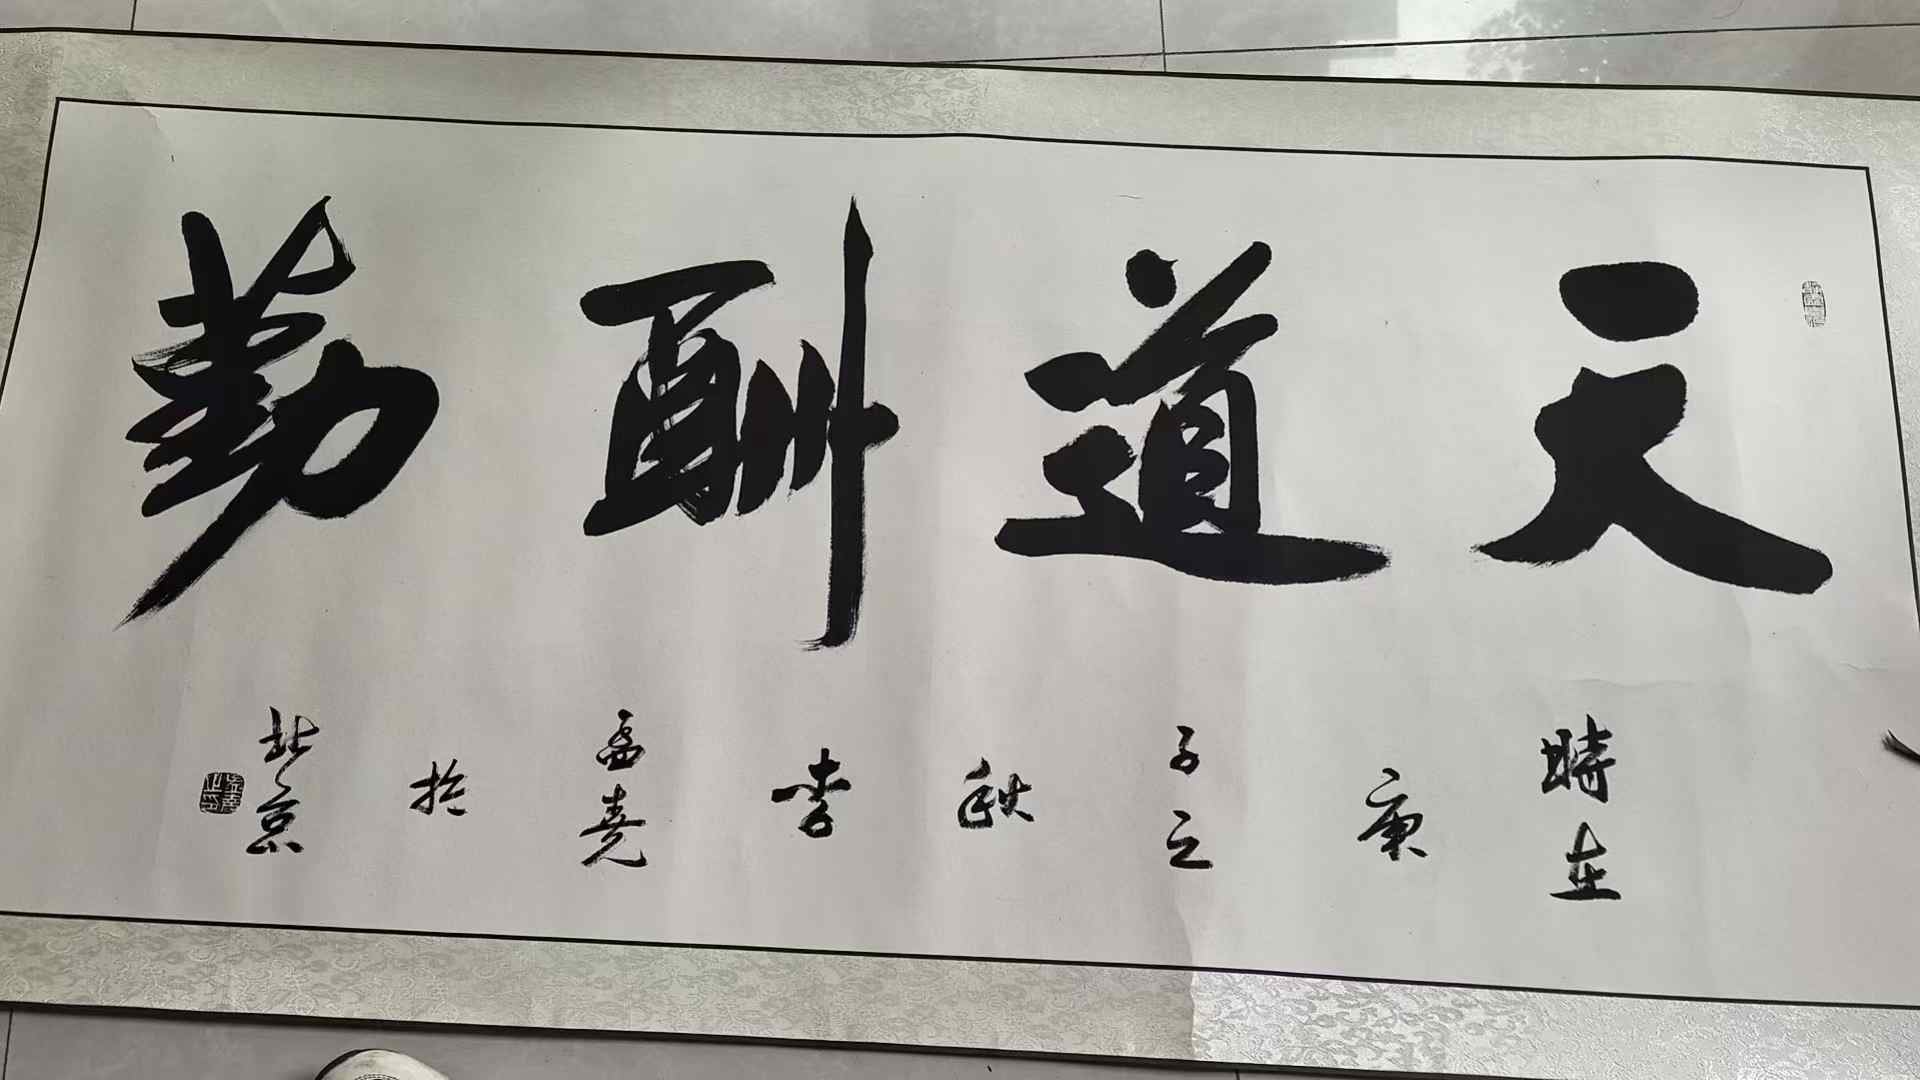 天道酬勤
時在庚子之秋李孟堯於北京